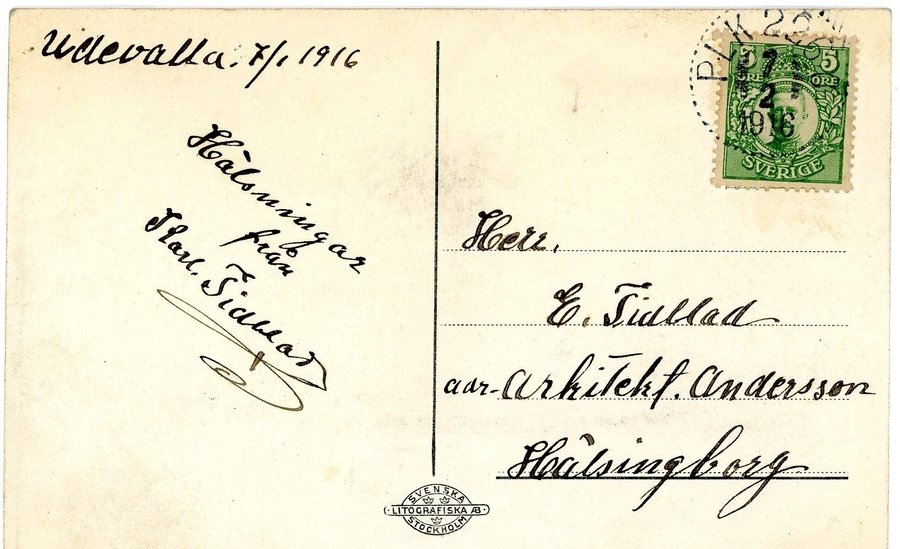 Udevalla. 7/1 1916
Hälsningar
från
Karl. Tidblad
PLK 293
7
2
1916
5 5
ÖRE ÖRE
SVERIGE
Herr.
E. Tidblad
adr. Arkitekt. Andersson
Hälsingborg
SVENSKA
LITOGRAFISKA AB
STOCKHOLM